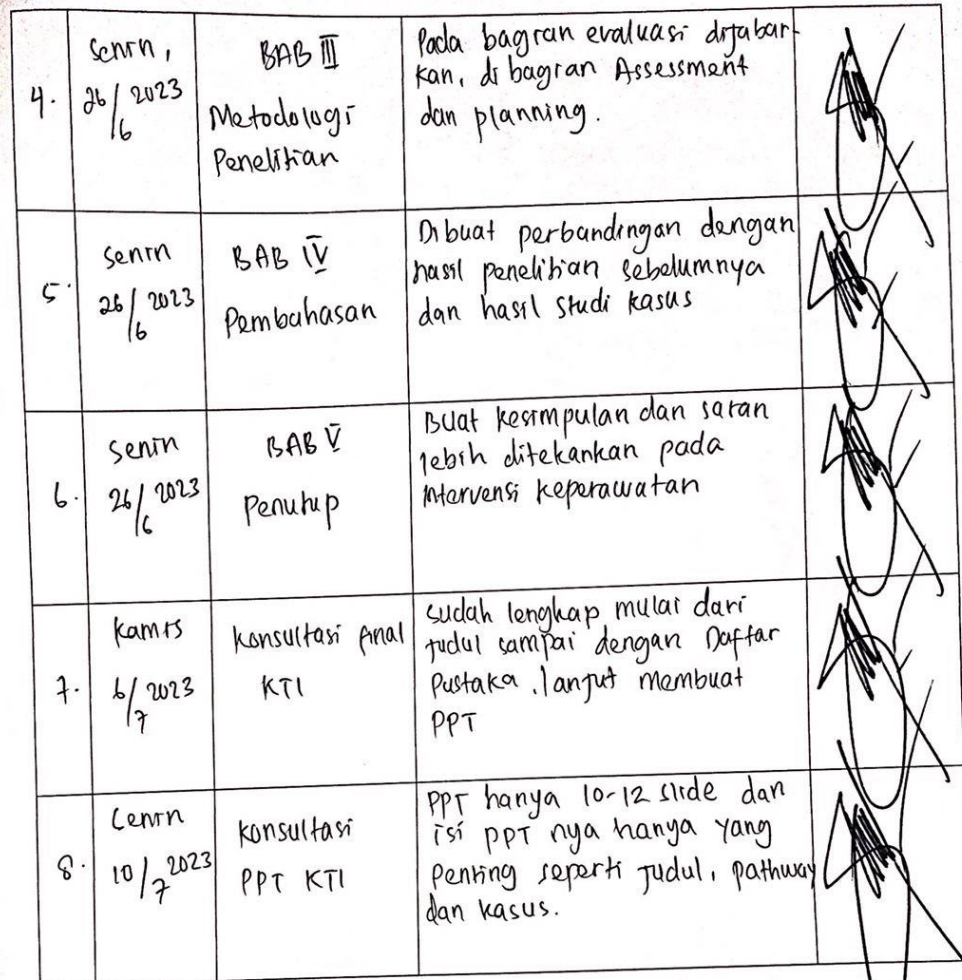 4.
Senin,
26/6 2023
BAB III
Metodologi
Penelitian
Pada bagian evaluasi dijabar-
kan, di bagian Assessment
dan planning.
5.
Senin
26/6 2023
BAB IV
Pembahasan
Dibuat perbandingan dengan
hasil penelitian sebelumnya
dan hasil studi kasus
6.
Senin
26/6 2023
BAB V
Penutup
Buat kesimpulan dan saran
lebih ditekankan pada
intervensi keperawatan
7.
Kamis
6/7 2023
Konsultasi final
KTI
Sudah lengkap mulai dari
judul sampai dengan Daftar
Pustaka, lanjut membuat
PPT
8.
Cenin
10/7 2023
Konsultasi
PPT KTI
PPT hanya 10-12 slide dan
isi PPT nya hanya yang
penting seperti judul, pathway
dan kasus.